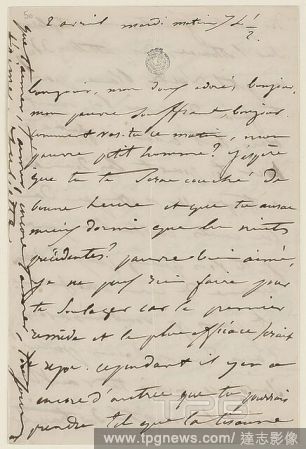 2 avril mardi matin 7h ½
bonjour, mon doux adoré, bonjour,
mon pauvre souffrant, bonjour.
comment vas-tu ce matin, mon
pauvre petit homme ? j'espère
que tu te seras couché de
bonne heure et que tu auras
mieux dormi que les nuits
précédentes ? pauvre bien aimé,
je ne puis rien faire pour
te soulager car le premier
remède et le plus efficace serait
le repos. cependant il y en a
encore d'autres que tu pourrais
prendre tel que la tisanne
TPG
www.tpgnews.com/ 達志影像